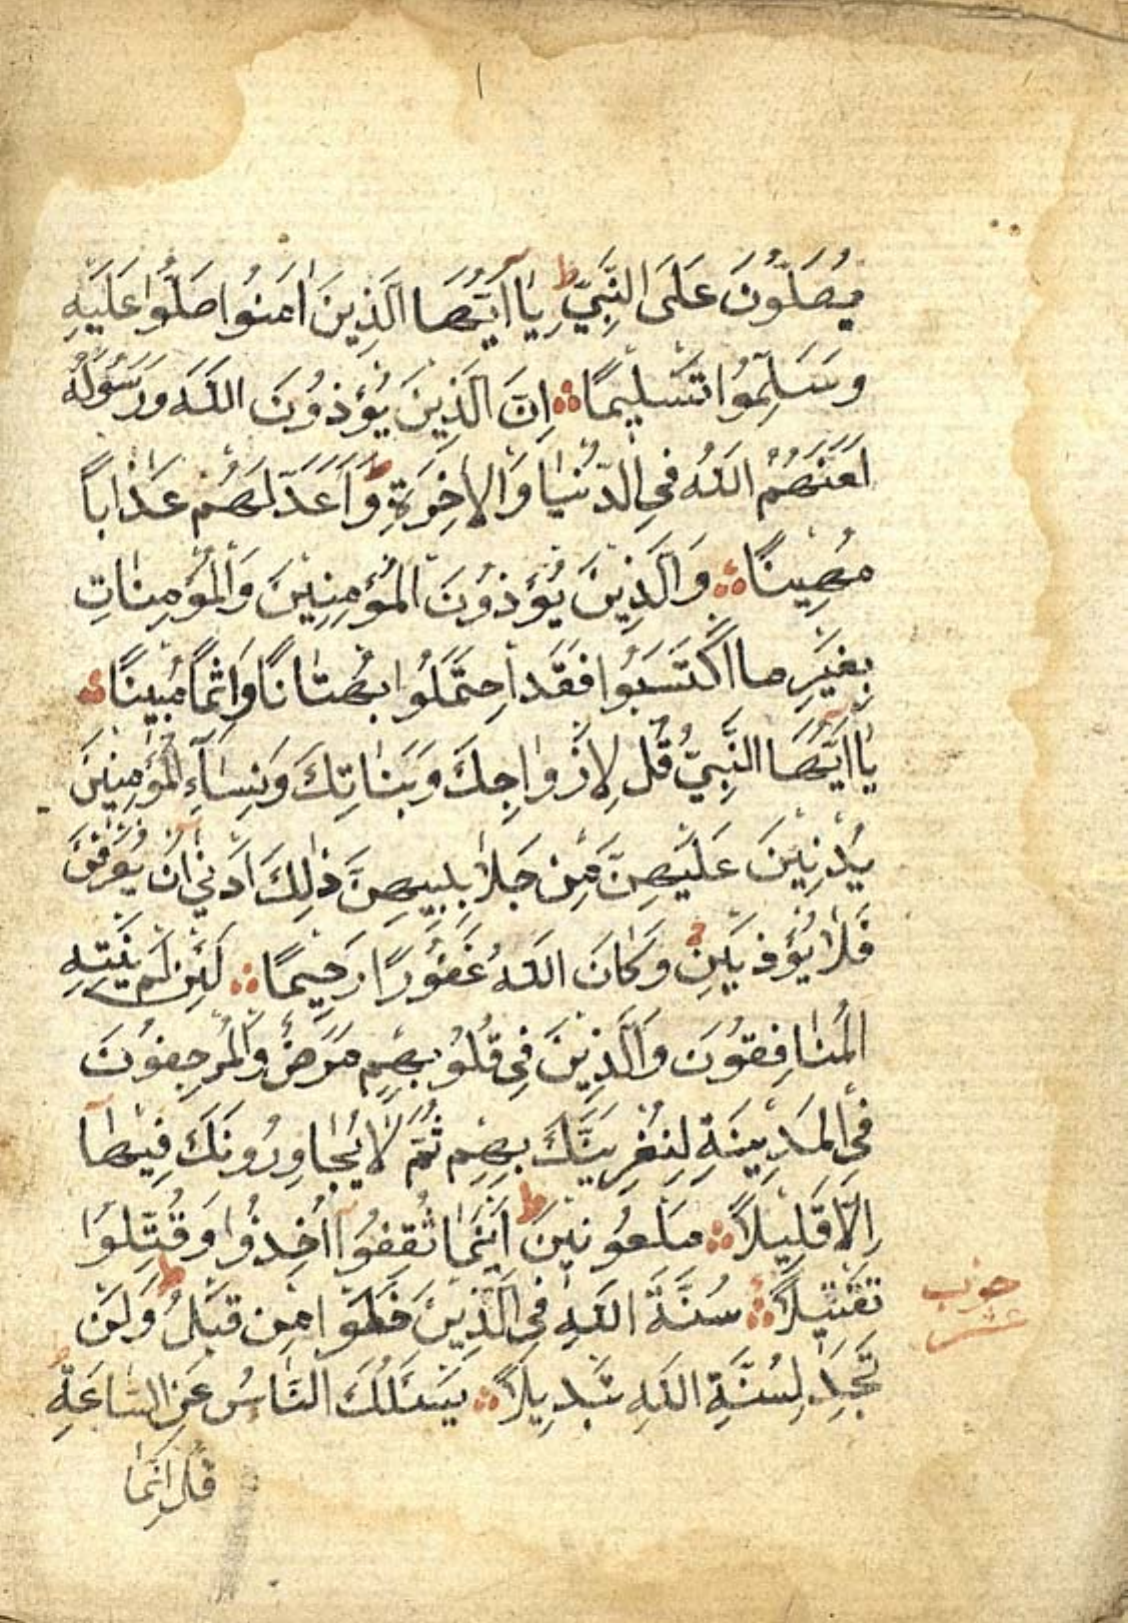 يُصَلُّونَ عَلَى النَّبِيِّ ط يَا اَيُّهَا الَّذِينَ اٰمَنُوا صَلُّوا عَلَيْهِ
وَسَلِّمُوا تَسْلِيمًا ۞ اِنَّ الَّذِينَ يُؤْذُونَ اللَّهَ وَرَسُولَهُ
لَعَنَهُمُ اللَّهُ فِي الدُّنْيَا وَالْاٰخِرَةِ ط وَاَعَدَّ لَهُمْ عَذَاباً
مُهِينًا ۞ وَالَّذِينَ يُؤْذُونَ الْمُؤْمِنِينَ وَالْمُؤْمِنَاتِ
بِغَيْرِ مَا اكْتَسَبُوا فَقَدِ احْتَمَلُوا بُهْتَانًا وَاِثْمًا مُبِينًا ۞
يَا اَيُّهَا النَّبِيُّ قُلْ لِاَزْوَاجِكَ وَبَنَاتِكَ وَنِسَاءِ الْمُؤْمِنِينَ
يُدْنِينَ عَلَيْهِنَّ مِنْ جَلَابِيبِهِنَّ ذٰلِكَ اَدْنٰى اَنْ يُعْرَفْنَ
فَلَا يُؤْذَيْنَ وَكَانَ اللَّهُ غَفُورًا رَحِيمًا ۞ لَئِنْ لَمْ يَنْتَهِ
الْمُنَافِقُونَ وَالَّذِينَ فِي قُلُوبِهِمْ مَرَضٌ وَالْمُرْجِفُونَ
فِي الْمَدِينَةِ لَنُغْرِيَنَّكَ بِهِمْ ثُمَّ لَا يُجَاوِرُونَكَ فِيهَا
اِلَّا قَلِيلاً ۞ مَلْعُونِينَ ط اَيْنَمَا ثُقِفُوا اُخِذُوا وَقُتِّلُوا
تَقْتِيلاً ۞ سُنَّةَ اللَّهِ فِي الَّذِينَ خَلَوْا مِنْ قَبْلُ ط وَلَنْ
تَجِدَ لِسُنَّةِ اللَّهِ تَبْدِيلاً ۞ يَسْئَلُكَ النَّاسُ عَنِ السَّاعَةِ ط
قُلْ اِنَّمَا
حزب
عشر